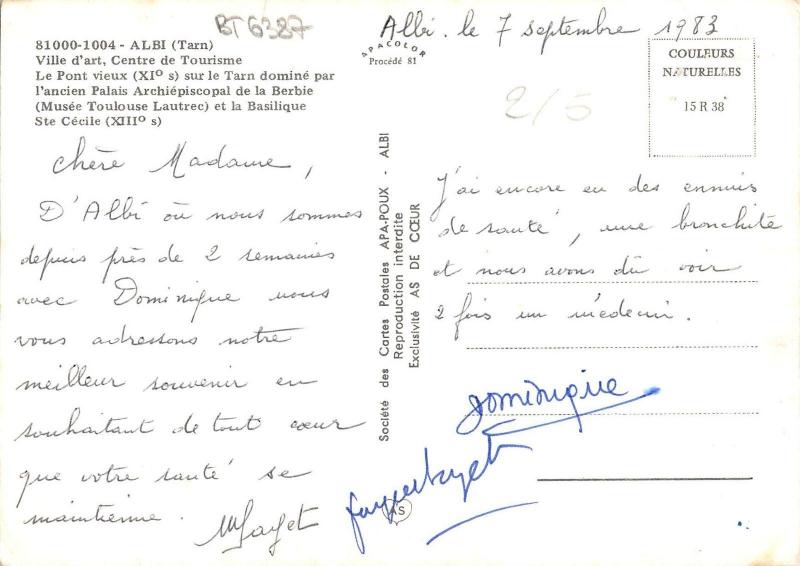 BT6387
81000-1004 - ALBI (Tarn)
Ville d'art, Centre de Tourisme
Le Pont vieux (XIº s) sur le Tarn dominé par
l'ancien Palais Archiépiscopal de la Berbie
(Musée Toulouse Lautrec) et la Basilique
Ste Cécile (XIIIº s)
APACOLOR
Procédé 81
Albi. le 7 septembre 1983
COULEURS
NATURELLES
15 R 38
2/5
chère Madame,
D'Albi où nous sommes
depuis près de 2 semaines
avec Dominique nous
vous adressons notre
meilleur souvenir en
souhaitant de tout cœur
que votre santé se
maintienne.
Société des Cartes Postales APA-POUX - ALBI
Reproduction interdite
Exclusivité AS DE CŒUR
J'ai encore eu des ennuis
de santé, une bronchite
et nous avons dû voir
2 fois un médecin.
Dominique
AS